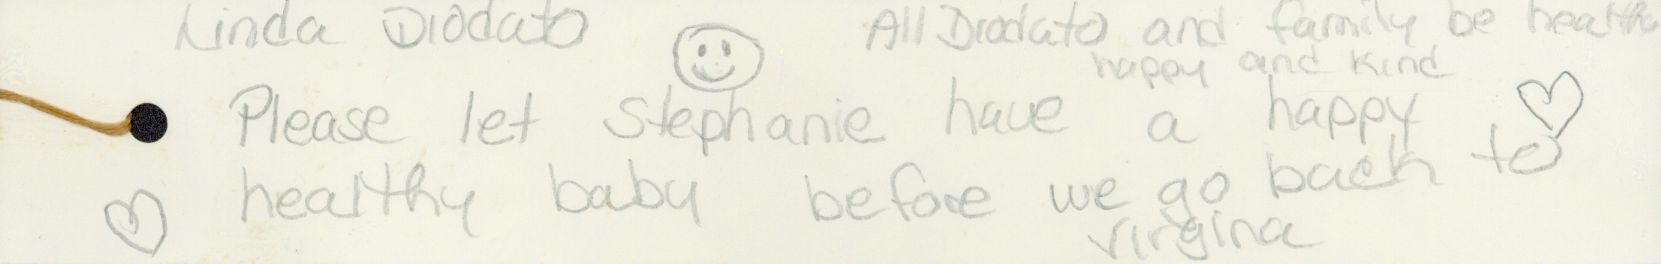 Linda Diodato
All Diodato and family be healthy
happy and kind
Please let Stephanie have a happy
healthy baby before we go back to
virgina